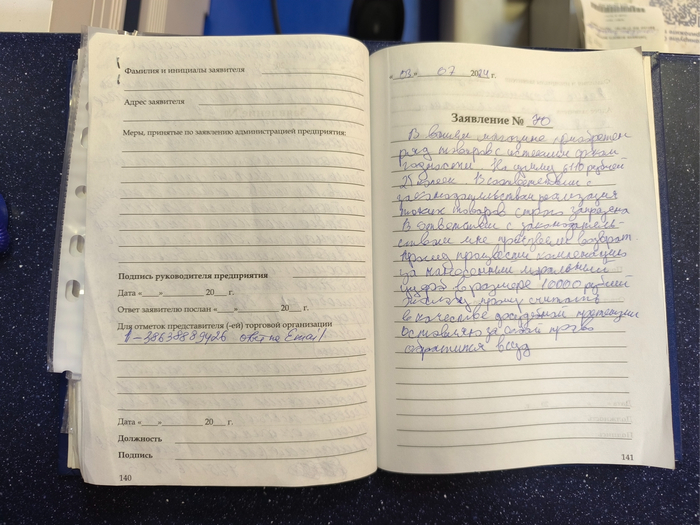 Фамилия и инициалы заявителя
Адрес заявителя
Меры, принятые по заявлению администрацией предприятия:
Подпись руководителя предприятия
Дата «___»________ 20___ г.
Ответ заявителю послан «___»________ 20___ г.
Для отметок представителя (-ей) торговой организации
ответ на Email
Дата «___»________ 20___ г.
Должность
Подпись
140
«03» 07 2024 г.
Заявление № 70
В вашем магазине приобретен
ряд товаров с истекшим сроком
годности. На сумму 6110 рублей
25 копеек. В соответствии с
законодательством реализация
таких товаров строго запрещена
В ответствии с законодатель-
ством мне произвели возврат.
Прошу произвести компенсацию
за нанесенный моральный
ущерб в размере 10000 рублей
жалобу прошу считать
в качестве досудебной претензии
Оставляю за собой право
обратится в суд
141